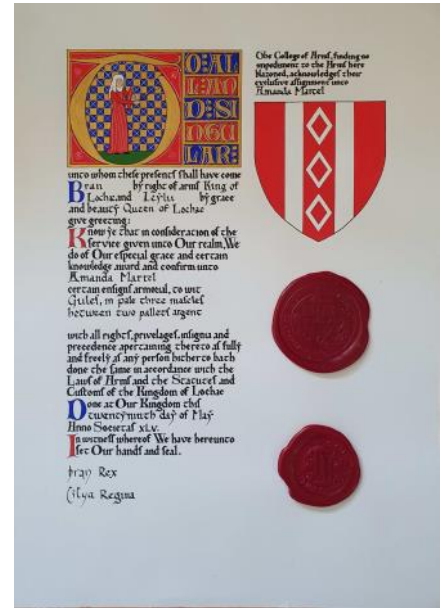 TO ALL
AND SI
NGU
LAR:
unto whom these presents shall have come
Bran by right of arms King of
Lochac and by grace
and beauty Queen of Lochac
give greeting:
Know ye that in consideration of the
service given unto Our realm, We
do of Our especial grace and certain
knowledge award and confirm unto
Amanda Martel
certain ensigns armorial, to wit
Gules, in pale three mascles
between two pallets argent
with all rights, privelages, insignia and
precedence apertaining thereto as fully
and freely as any person hitherto hath
done the same in accordance with the
Laws of Arms and the Statutes and
Customs of the Kingdom of Lochac
Done at Our Kingdom this
twentyninth day of May
Anno Societas XLV.
In witness whereof We have hereunto
set Our hands and seal.
Bran Rex
Regina
The College of Arms, finding no
impediment to the Arms here
blazoned, acknowledges their
exclusive assignment unto
Amanda Martel